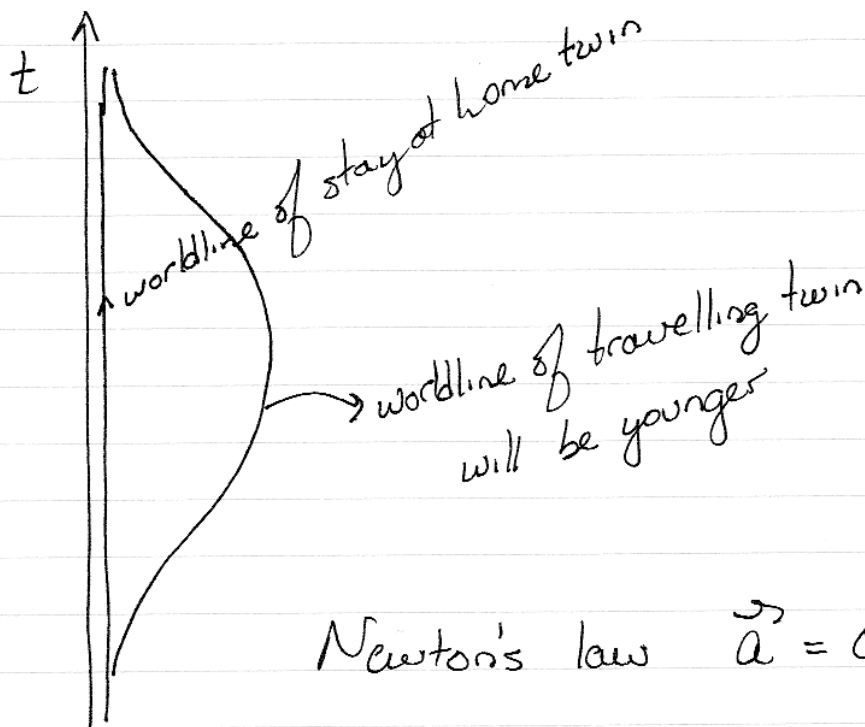 t
worldline of stay at home twin
worldline of travelling twin
will be younger
Newton's law a⃗ =